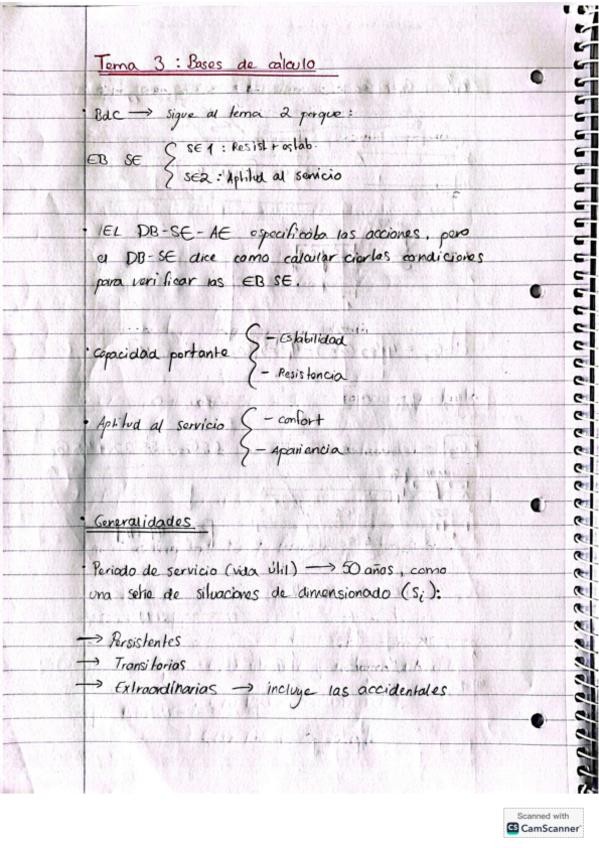 Tema 3 : Bases de cálculo
• BdC → Sigue al tema 2 porque :
EB SE { SE1 : Resist + estab.
SE2 : Aptitud al servicio
• EL DB-SE-AE especificaba las acciones, pero
el DB-SE dice como calcular ciertas condiciones
para verificar las EB SE.
• Capacidad portante { - Estabilidad
- Resistencia
• Aptitud al servicio { - confort
- Apariencia
• Generalidades
• Periodo de servicio (vida útil) → 50 años, como
una serie de situaciones de dimensionado (Si):
→ Persistentes
→ Transitorias
→ Extraordinarias → incluye las accidentales
Scanned with
CS CamScanner